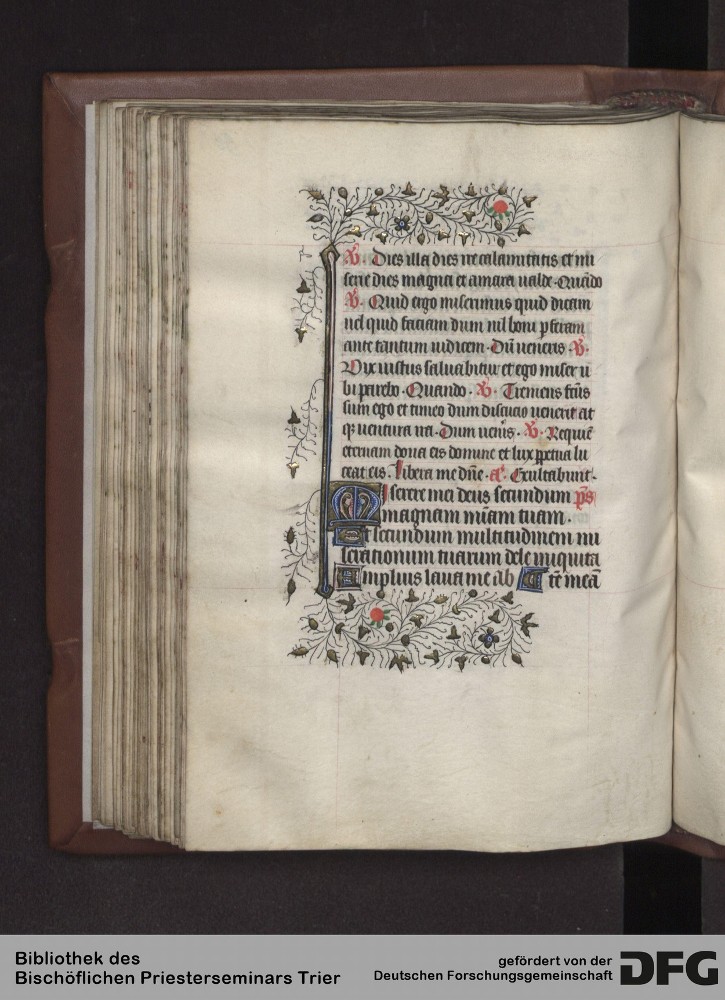 ℣. Dies illa dies ire calamitatis et mi
serie dies magna et amara ualde. Quādo
℣. Quid ergo miserrimus quid dicam
uel quid faciam dum nil boni pferam
ante tantum iudicem. Dū ueneris. ℣.
Vix iustus saluabitur et ego miser u
bi parebo. Quando. ℣. Tremens fcūs
sum ego et timeo dum discucio uenerit at
qꝫ uentura ira. Dum ueñis. ℣. Requiē
eternam dona eis domine et lux ꝑpetua lu
ceat eis. Libera me dñe. añ. Exultabunt.
Miserere mei deus secundum p̄s
magnam miam̄ tuam.
Et secundum multitudinem mi
serationum tuarum dele iniquita
Amplius laua me ab te meā
Bibliothek des
Bischöflichen Priesterseminars Trier
gefördert von der
Deutschen Forschungsgemeinschaft
DFG